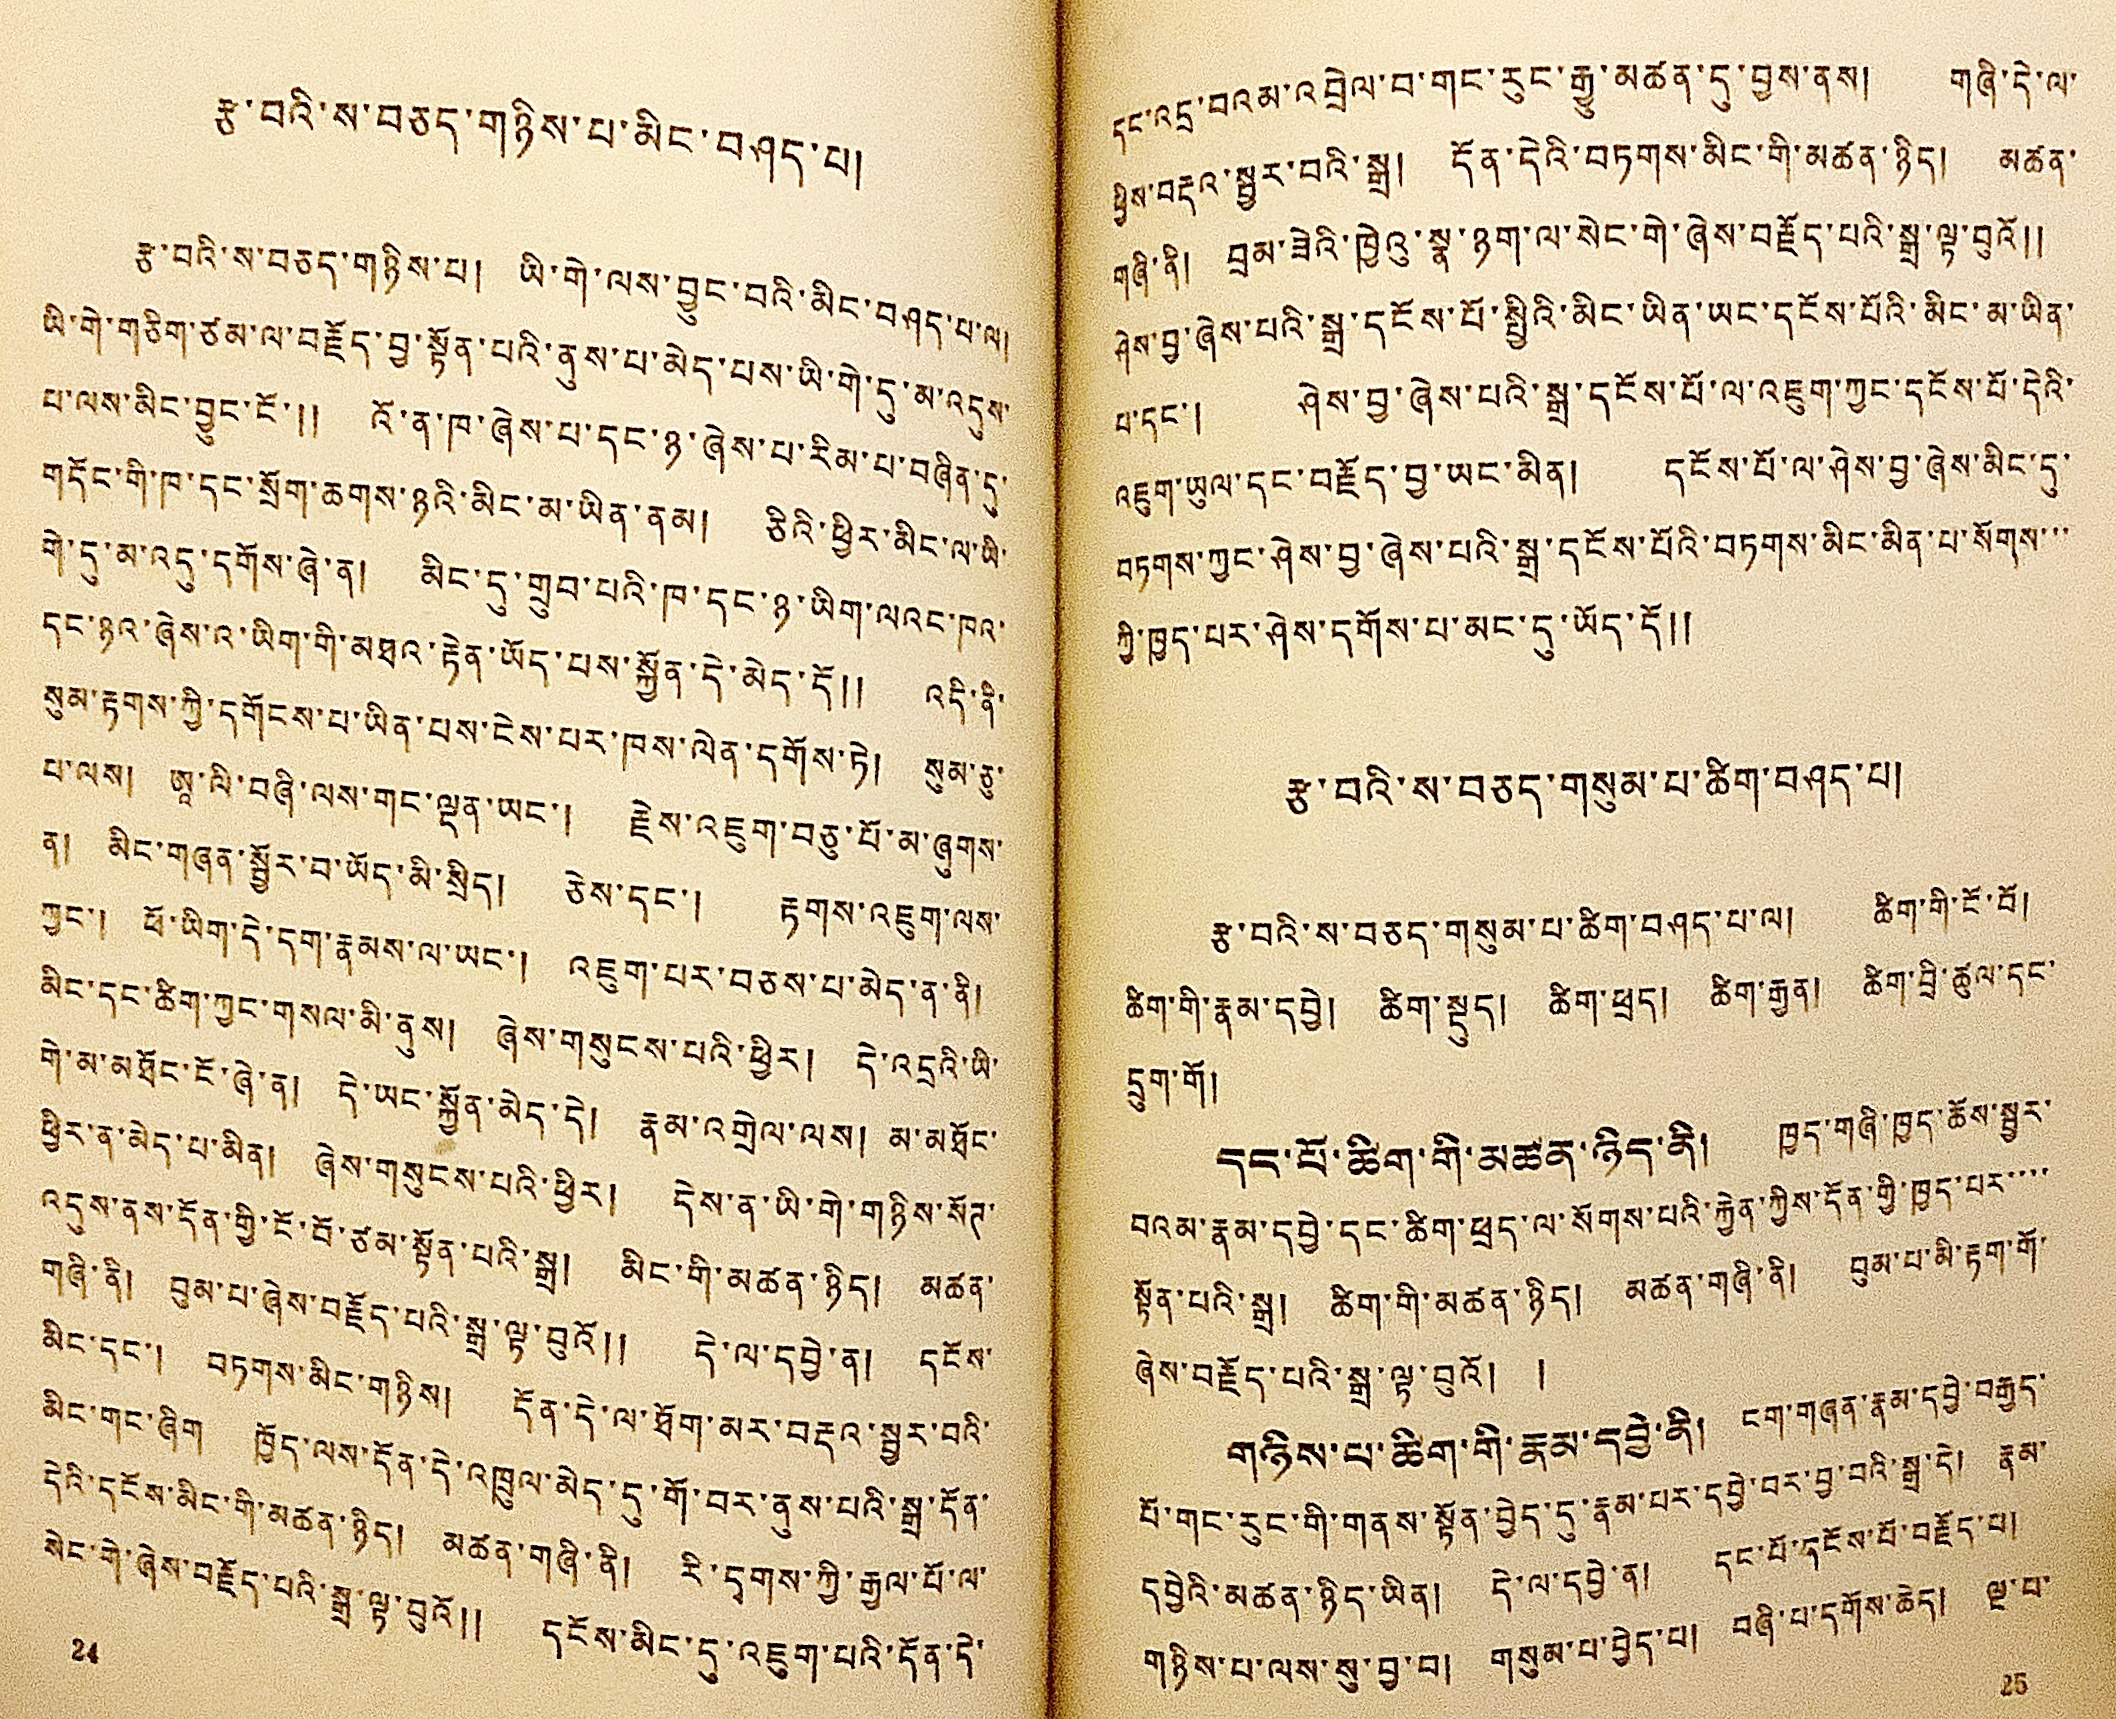 རྩ་བའི་ས་བཅད་གཉིས་པ་མིང་བཤད་པ།
རྩ་བའི་ས་བཅད་གཉིས་པ། ཡི་གེ་ལས་བྱུང་བའི་མིང་བཤད་པ་ལ།
ཡི་གེ་གཅིག་ཙམ་ལ་བརྗོད་བྱ་སྟོན་པའི་ནུས་པ་མེད་པས་ཡི་གེ་དུ་མ་འདུས་
པ་ལས་མིང་བྱུང་ངོ་།། འོ་ན་ཁ་ཞེས་པ་དང་ཉ་ཞེས་པ་རིམ་པ་བཞིན་དུ་
གདོང་གི་ཁ་དང་སྲོག་ཆགས་ཉའི་མིང་མ་ཡིན་ནམ། ཅིའི་ཕྱིར་མིང་ལ་ཡི་
གེ་དུ་མ་འདུ་དགོས་ཞེ་ན། མིང་དུ་གྲུབ་པའི་ཁ་དང་ཉ་ཡིག་ལའང་ཁའ་
དང་ཉའ་ཞེས་འ་ཡིག་གི་མཐའ་རྟེན་ཡོད་པས་སྐྱོན་དེ་མེད་དོ།། འདི་ནི་
སུམ་རྟགས་ཀྱི་དགོངས་པ་ཡིན་པས་ངེས་པར་ཁས་ལེན་དགོས་ཏེ། སུམ་ཅུ་
པ་ལས། ཨཱ་ལི་བཞི་ལས་གང་ལྡན་ཡང་། རྗེས་འཇུག་བཅུ་པོ་མ་ཞུགས་
ན། མིང་གཞན་སྦྱོར་བ་ཡོད་མི་སྲིད། ཅེས་དང་། རྟགས་འཇུག་ལས་
ཀྱང་། ཕོ་ཡིག་དེ་དག་རྣམས་ལ་ཡང་། འཇུག་པར་བཅས་པ་མེད་ན་ནི།
མིང་དང་ཚིག་ཀྱང་གསལ་མི་ནུས། ཞེས་གསུངས་པའི་ཕྱིར། དེ་འདྲའི་ཡི་
གེ་མ་མཐོང་ངོ་ཞེ་ན། དེ་ཡང་སྐྱོན་མེད་དེ། རྣམ་འགྲེལ་ལས། མ་མཐོང་
ཕྱིར་ན་མེད་པ་མིན། ཞེས་གསུངས་པའི་ཕྱིར། དེས་ན་ཡི་གེ་གཉིས་སོཊ་
འདུས་ནས་དོན་གྱི་ངོ་བོ་ཙམ་སྟོན་པའི་སྒྲ། མིང་གི་མཚན་ཉིད། མཚན་
གཞི་ནི། བུམ་པ་ཞེས་བརྗོད་པའི་སྒྲ་ལྟ་བུའོ།། དེ་ལ་དབྱེ་ན། དངོས་
མིང་དང་། བཏགས་མིང་གཉིས། དོན་དེ་ལ་ཐོག་མར་བརྡའ་སྦྱར་བའི་
མིང་གང་ཞིག ཁྱོད་ལས་དོན་དེ་འཁྲུལ་མེད་དུ་གོ་བར་ནུས་པའི་སྒྲ་དོན་
དེའི་དངོས་མིང་གི་མཚན་ཉིད། མཚན་གཞི་ནི། རི་དྭགས་ཀྱི་རྒྱལ་པོ་ལ་
སེང་གེ་ཞེས་བརྗོད་པའི་སྒྲ་ལྟ་བུའོ།། དངོས་མིང་དུ་འཇུག་པའི་དོན་དེ་
24
དང་འདྲ་བའམ་འབྲེལ་བ་གང་རུང་རྒྱུ་མཚན་དུ་བྱས་ནས། གཞི་དེ་ལ་
ཕྱིས་བརྡའ་སྦྱར་བའི་སྒྲ། དོན་དེའི་བཏགས་མིང་གི་མཚན་ཉིད། མཚན་
གཞི་ནི། བྲམ་ཟེའི་ཁྱེའུ་སྣ་ཉག་ལ་སེང་གེ་ཞེས་བརྗོད་པའི་སྒྲ་ལྟ་བུའོ།།
ཤེས་བྱ་ཞེས་པའི་སྒྲ་དངོས་པོ་སྤྱིའི་མིང་ཡིན་ཡང་དངོས་པོའི་མིང་མ་ཡིན་
པ་དང་། ཤེས་བྱ་ཞེས་པའི་སྒྲ་དངོས་པོ་ལ་འཇུག་ཀྱང་དངོས་པོ་དེའི་
འཇུག་ཡུལ་དང་བརྗོད་བྱ་ཡང་མིན། དངོས་པོ་ལ་ཤེས་བྱ་ཞེས་མིང་དུ་
བཏགས་ཀྱང་ཤེས་བྱ་ཞེས་པའི་སྒྲ་དངོས་པོའི་བཏགས་མིང་མིན་པ་སོགས་་་
ཀྱི་ཁྱད་པར་ཤེས་དགོས་པ་མང་དུ་ཡོད་དོ།།
རྩ་བའི་ས་བཅད་གསུམ་པ་ཚིག་བཤད་པ།
རྩ་བའི་ས་བཅད་གསུམ་པ་ཚིག་བཤད་པ་ལ། ཚིག་གི་ངོ་བོ།
ཚིག་གི་རྣམ་དབྱེ། ཚིག་སྡུད། ཚིག་ཕྲད། ཚིག་རྒྱན། ཚིག་བྲི་ཚུལ་དང་
དྲུག་གོ།
དང་པོ་ཚིག་གི་མཚན་ཉིད་ནི། ཁྱད་གཞི་ཁྱད་ཆོས་སྦྱར་
བའམ་རྣམ་དབྱེ་དང་ཚིག་ཕྲད་ལ་སོགས་པའི་རྐྱེན་ཀྱིས་དོན་གྱི་ཁྱད་པར་་་་
སྟོན་པའི་སྒྲ། ཚིག་གི་མཚན་ཉིད། མཚན་གཞི་ནི། བུམ་པ་མི་རྟག་གོ་
ཞེས་བརྗོད་པའི་སྒྲ་ལྟ་བུའོ། །
གཉིས་པ་ཚིག་གི་རྣམ་དབྱེ་ནི། ངག་གཞན་རྣམ་དབྱེ་བརྒྱད་
པོ་གང་རུང་གི་གནས་སྟོན་བྱེད་དུ་རྣམ་པར་དབྱེ་བར་བྱ་བའི་སྒྲ་དེ། རྣམ་
དབྱེའི་མཚན་ཉིད་ཡིན། དེ་ལ་དབྱེ་ན། དང་པོ་དངོས་པོ་བརྗོད་པ།
གཉིས་པ་ལས་སུ་བྱ་བ། གསུམ་པ་བྱེད་པ། བཞི་པ་དགོས་ཆེད། ལྔ་པ་
25